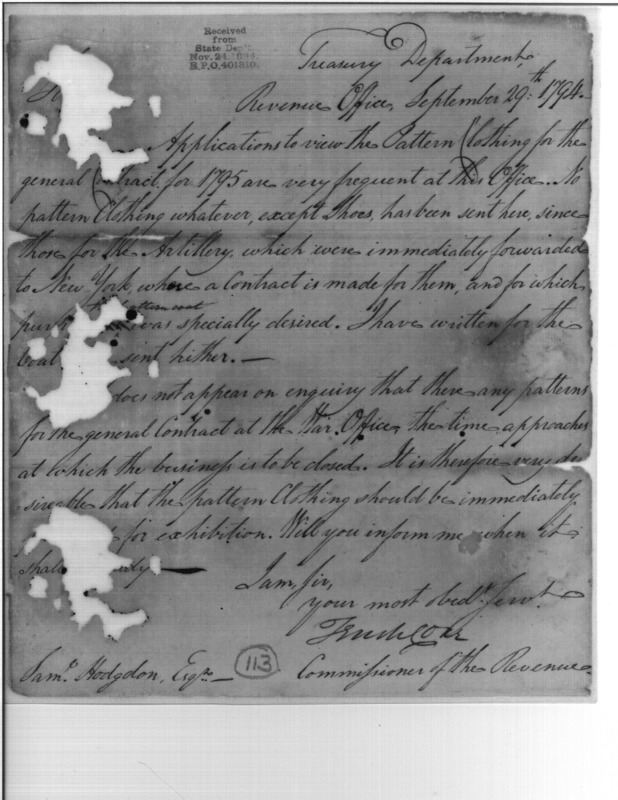 Received
from
State Dep't.
Nov. 24, 1894.
R.P.O. 401310.
Treasury Department,
Revenue Office, September 29th. 1794.
Applications to view the Pattern Clothing for the
general Contract for 1795 are very frequent at this Office. No
pattern Clothing whatever, except Shoes, has been sent here, since
those for the Artillery, which were immediately forwarded
to New York, where a Contract is made for them, and for which
pattern coat
was specially desired. I have written for the
sent hither. —
does not appear on enquiry that there any patterns
for the general Contract at the War Office, the time approaches
at which the business is to be closed. It is therefore very de
sireable that the pattern Clothing should be immediately
for exhibition. Will you inform me when it
I am, Sir,
your most obedt. Servt.
Tench Coxe
Saml. Hodgdon, Esqr. — 113 Commissioner of the Revenue